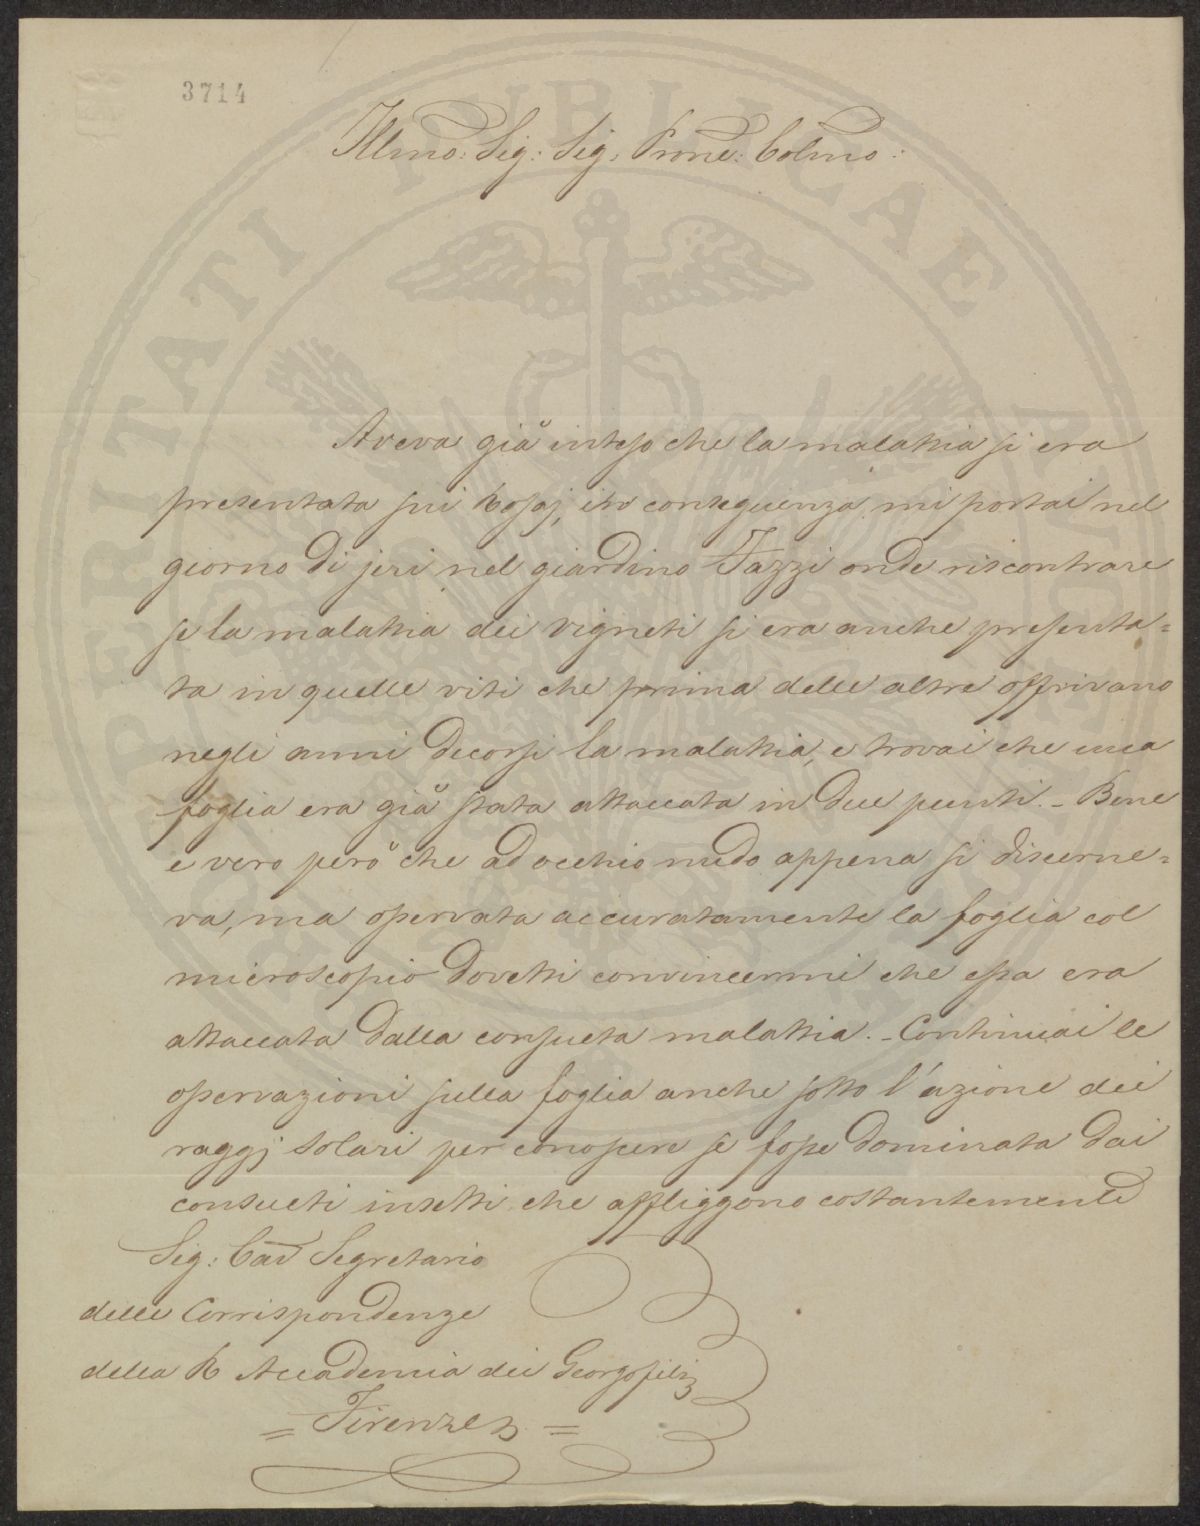 3714
Illmo: Sig: Sig: Prone: Colmo:
Aveva già inteso che la malattia si era
presentata sui Rosaj, in conseguenza mi portai nel
giorno di jeri nel giardino Fazzi onde riscontrare
se la malattia dei vigneti si era anche presenta=
ta in quelle viti che prima delle altre offrivano
negli anni decorsi la malattia, e trovai che una
foglia era già stata attaccata in due punti. - Bene
è vero però che ad occhio nudo appena si discerne=
va, ma osservata accuratamente la foglia col
microscopio dovetti convincermi che essa era
attaccata dalla consueta malattia. - Continuai le
osservazioni sulla foglia anche sotto l'azione dei
raggj solari per conoscere se fosse dominata dai
consueti insetti che affliggono costantemente
Sig: Cav Segretario
delle Corrispondenze
della R Accademia dei Georgofili
= Firenze =